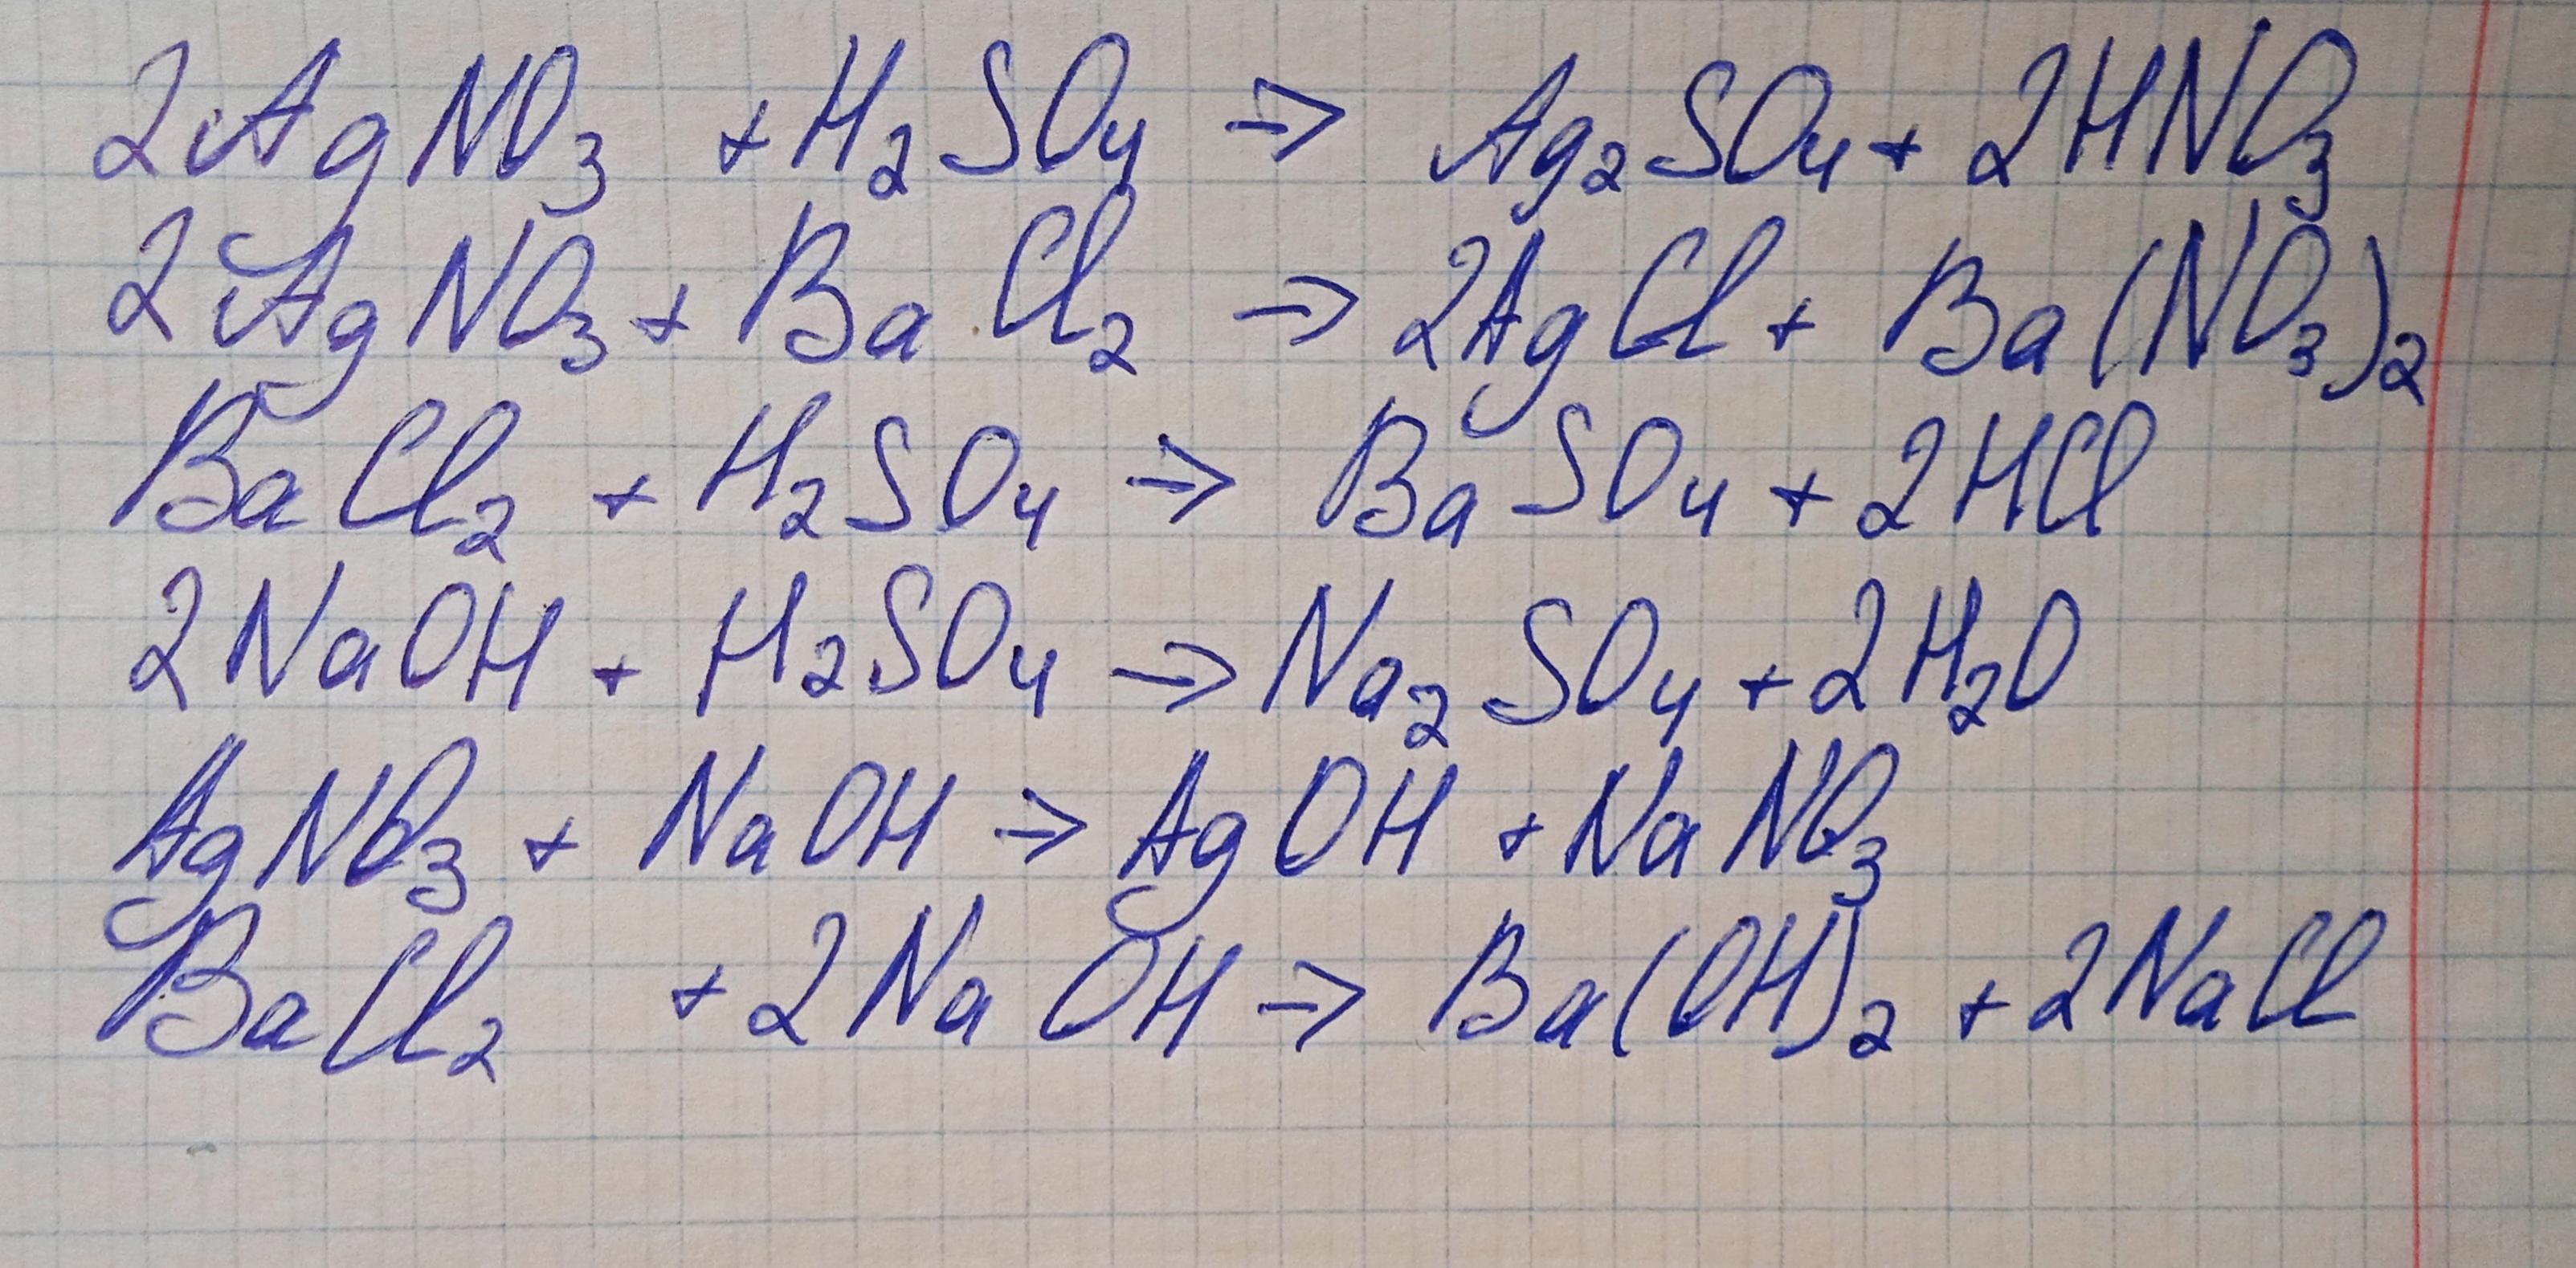 2AgNO₃ + H₂SO₄ → Ag₂SO₄ + 2HNO₃
2AgNO₃ + BaCl₂ → 2AgCl + Ba(NO₃)₂
BaCl₂ + H₂SO₄ → BaSO₄ + 2HCl
2NaOH + H₂SO₄ → Na₂SO₄ + 2H₂O
AgNO₃ + NaOH → AgOH + NaNO₃
BaCl₂ + 2NaOH → Ba(OH)₂ + 2NaCl